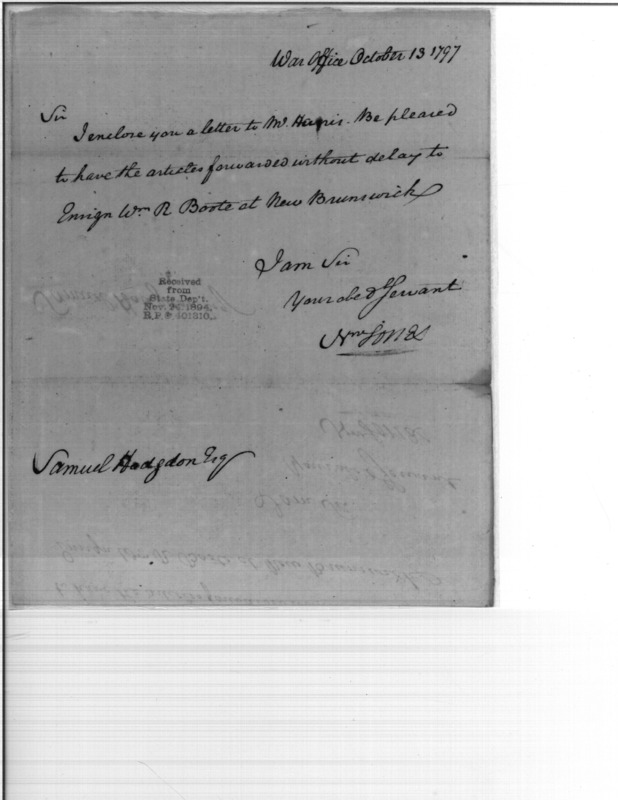 War Office October 13 1797
Sir
I enclose you a letter to Mr Harris. Be pleased
to have the articles forwarded without delay to
Ensign Wm R Boote at New Brunswick
I am Sir
Your obedt Servant
Wm Jones
Received
from
State Dep't.
Nov. 24, 1894,
R.P. 401810.
Samuel Hodgdon Esq